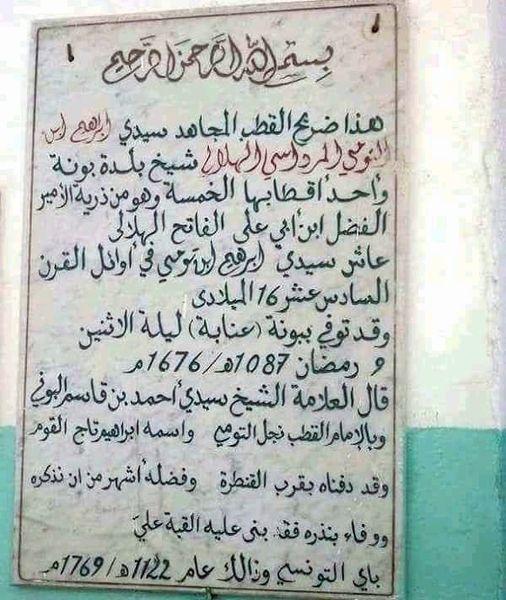 بسم الله الرحمن الرحيم
هذا ضريح القطب المجاهد سيدي ابراهيم ابن
التومي المرداسي الهلالي شيخ بلدة بونة
وأحد أقطابها الخمسة وهو من ذرية الأمير
الفضل ابن أبي علي الفاتح الهلالي
عاش سيدي ابراهيم ابن تومي في أوائل القرن
السادس عشر 16 الميلادي
وقد توفي ببونة (عنابة) ليلة الاثنين
9 رمضان 1087هـ/1676م
قال العلامة الشيخ سيدي أحمد بن قاسم البوني
وبالإمام القطب نجل التومي واسمه ابراهيم تاج القوم
وقد دفناه بقرب القنطرة وفضله أشهر من ان نذكره
ووفاء بنذره فقد بنى عليه القبة عليّ
باي التونسي وذالك عام 1122هـ/1769م